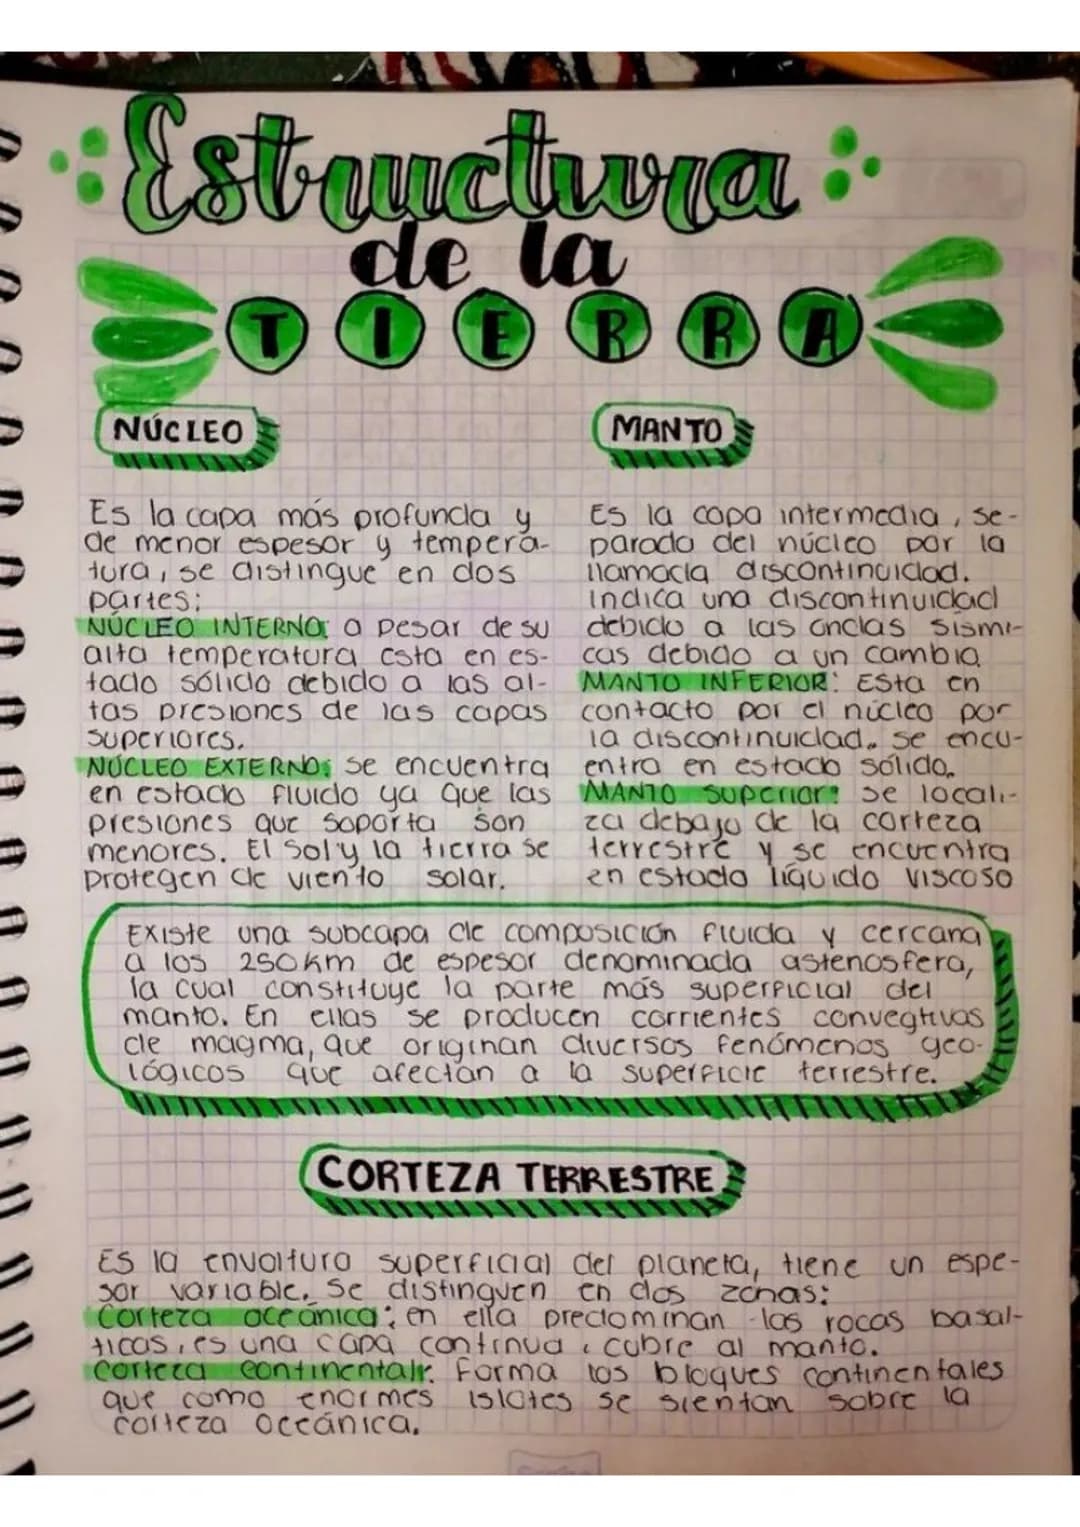 Estructura
de la
TIERRA
NÚCLEO
Es la capa más profunda y
de menor espesor y tempera-
tura, se distingue en dos
partes:
NÚCLEO INTERNO: a pesar de su
alta temperatura esta en es-
tado sólido debido a las al-
tas presiones de las capas
superiores.
NÚCLEO EXTERNO: se encuentra
en estado fluido ya que las
presiones que soporta son
menores. El Sol y la tierra se
protegen de viento solar.
MANTO
Es la capa intermedia, se-
parada del núcleo por la
llamada discontinuidad.
Indica una discontinuidad
debido a las ondas sísmi-
cas debido a un cambio
MANTO INFERIOR: Esta en
contacto por el núcleo por
la discontinuidad. se encu-
entra en estado sólido.
MANTO Superior: se locali-
za debajo de la corteza
terrestre y se encuentra
en estado líquido viscoso
Existe una subcapa de composición fluida y cercana
a los 250km de espesor denominada astenosfera,
la cual constituye la parte más superficial del
manto. En ellas se producen corrientes convegtivas
de magma, que originan diversos fenómenos geo-
lógicos que afectan a la superficie terrestre.
CORTEZA TERRESTRE
Es la envoltura superficial del planeta, tiene un espe-
sor variable. Se distinguen en dos zonas:
Corteza oceánica: en ella predominan las rocas basal-
ticas, es una capa continua, cubre al manto.
Corteza continental: Forma los bloques continentales
que como enormes islotes se sientan sobre la
corteza oceánica.